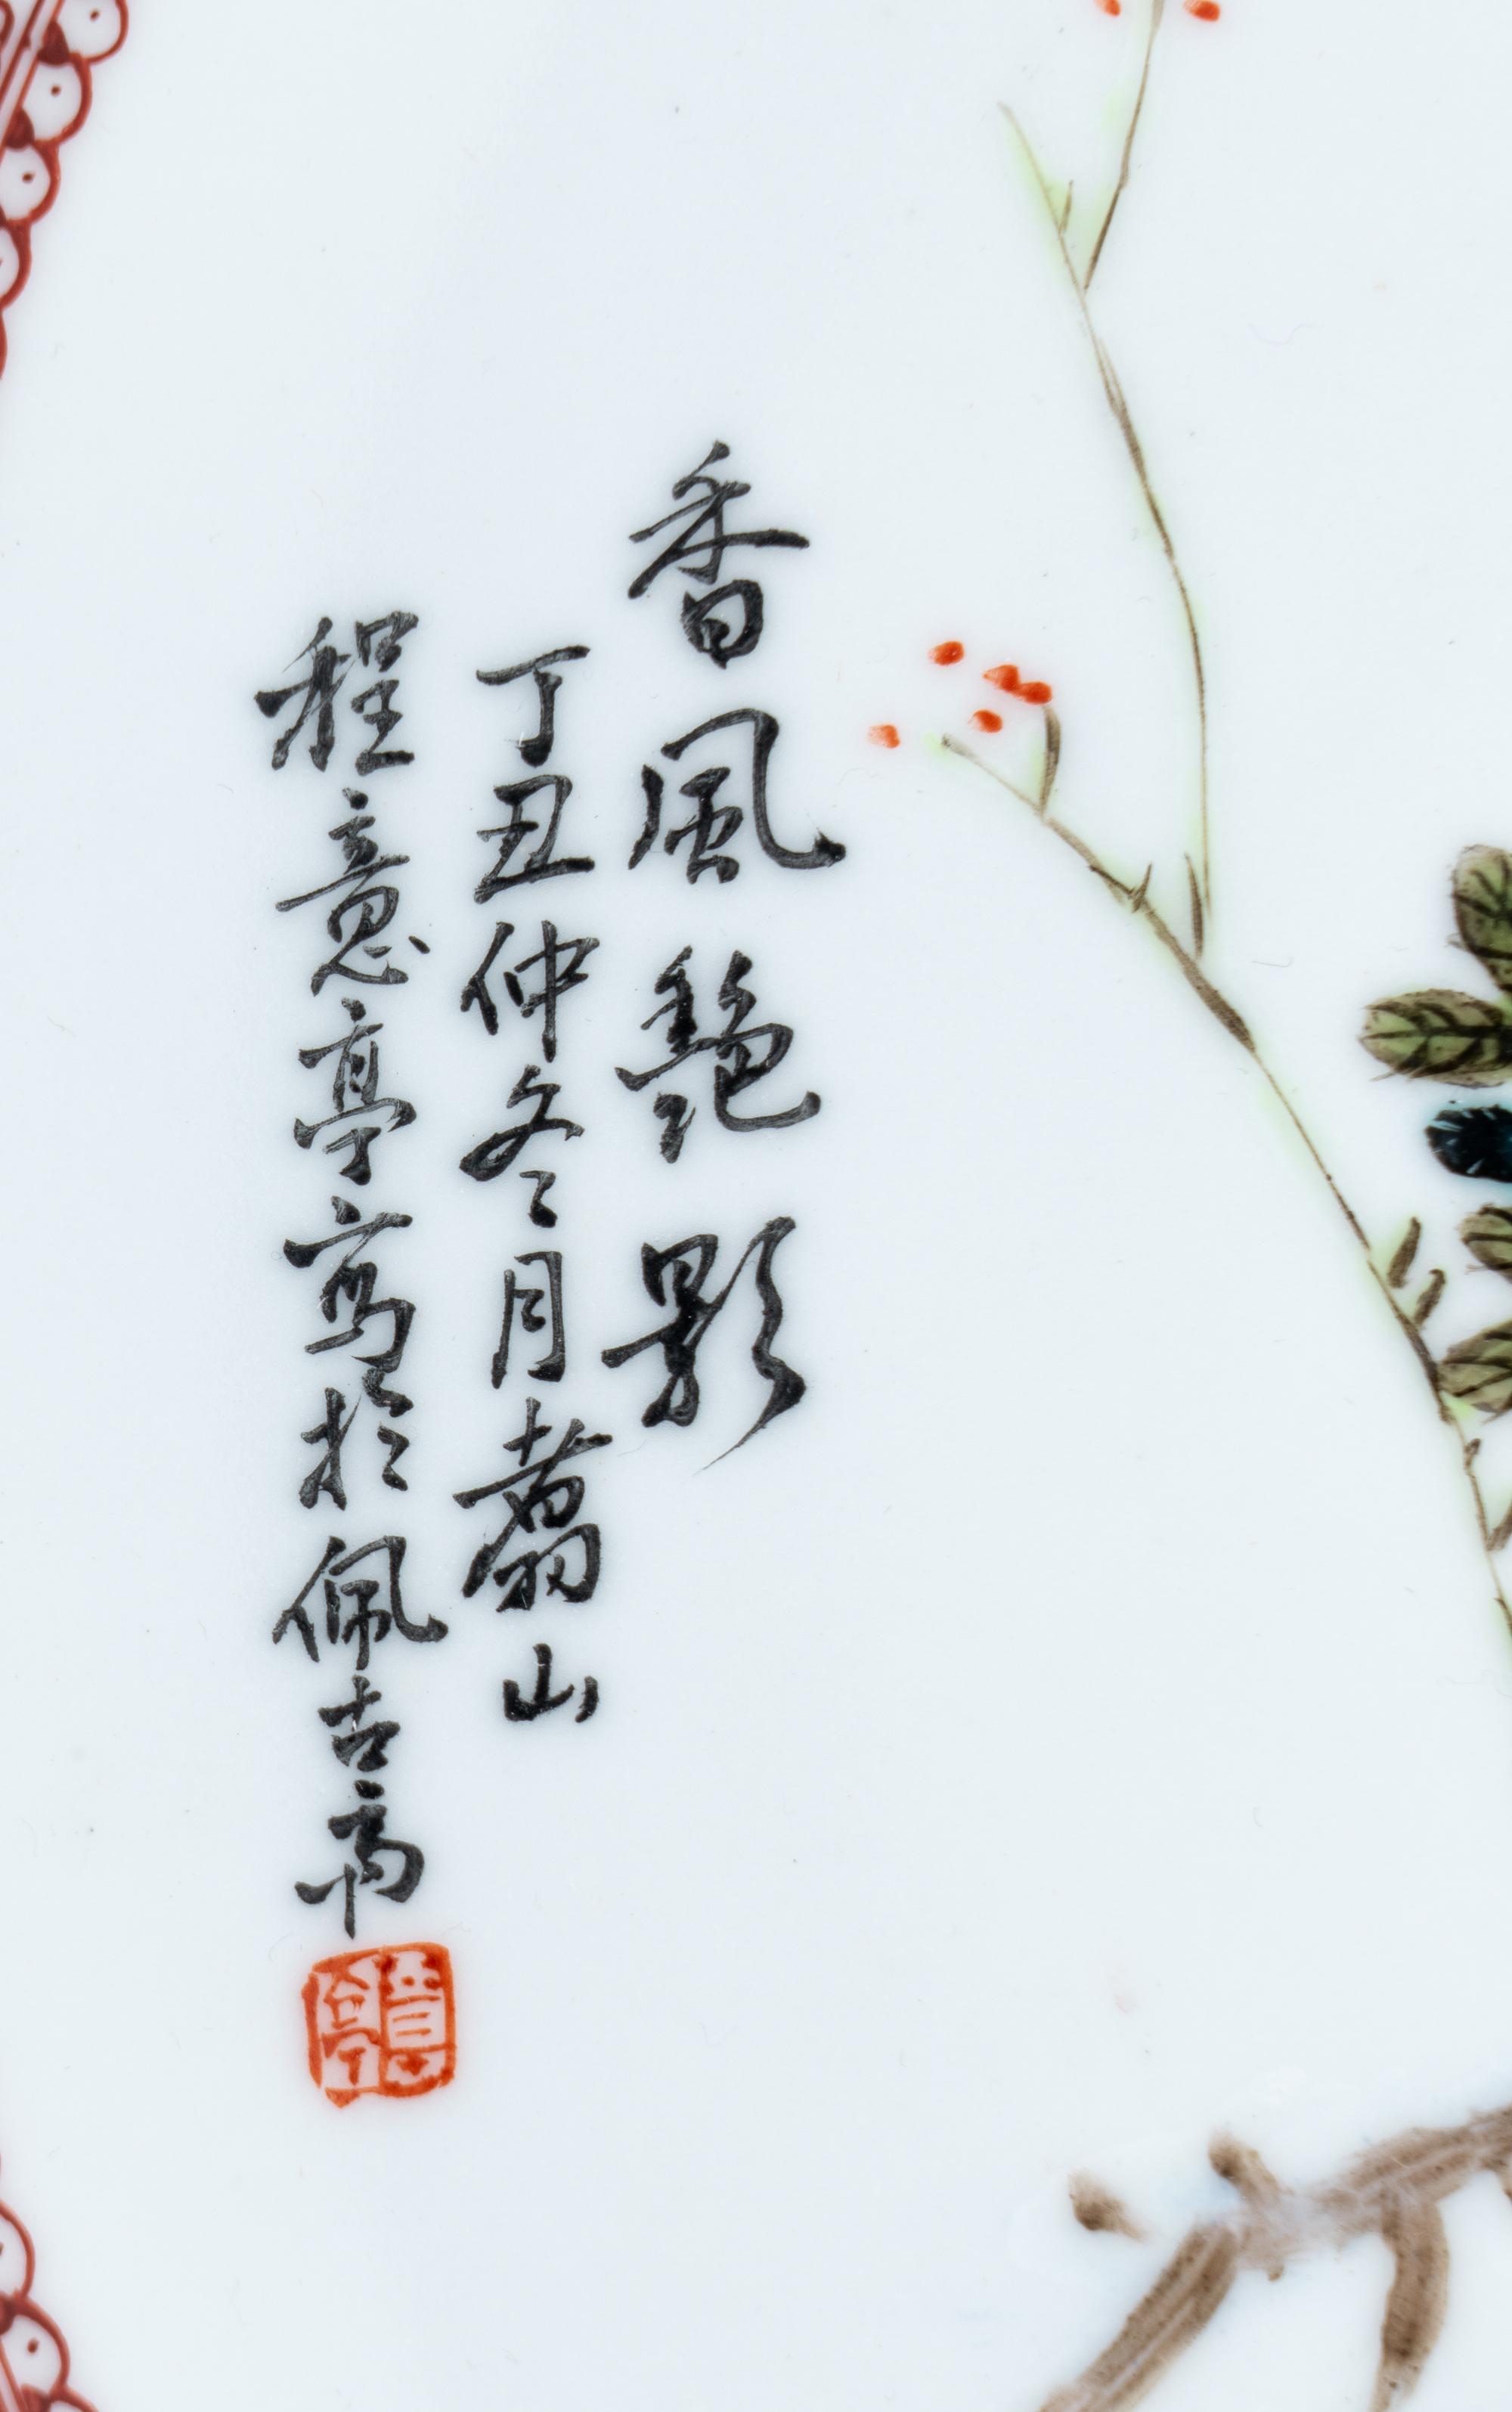 香風艶影
丁丑仲冬月翥山
程意亭寫於佩古齋
意亭